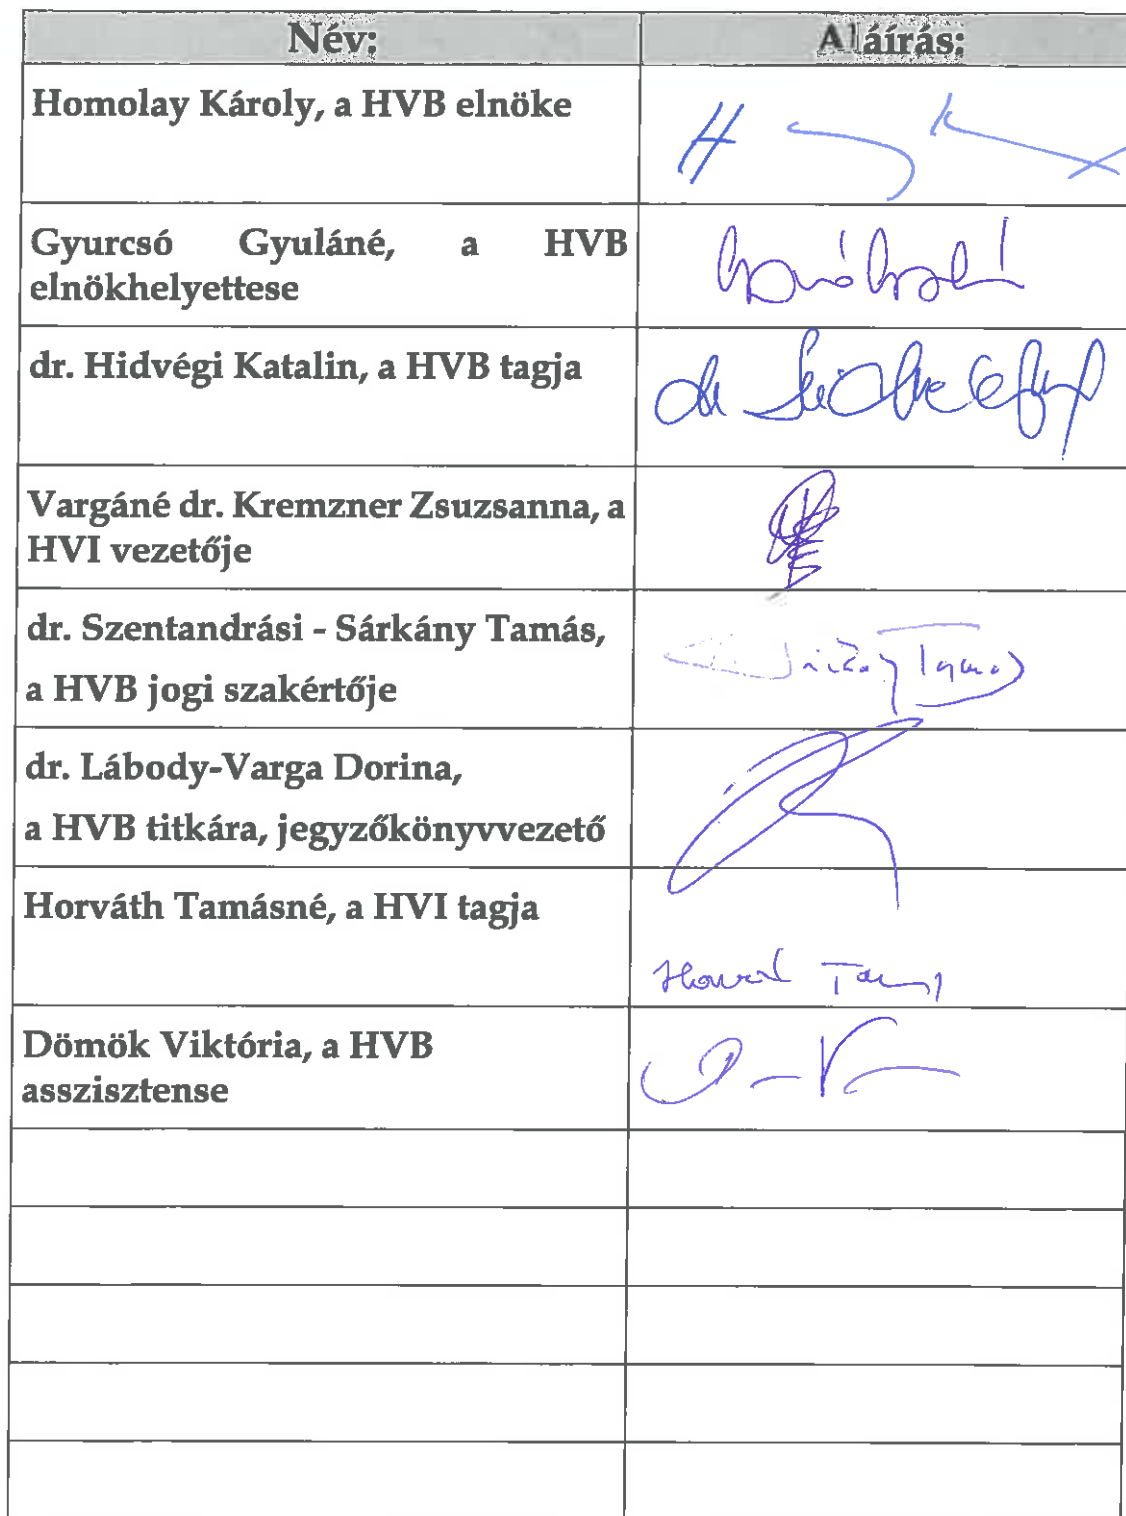 Név: Aláírás:
Homolay Károly, a HVB elnöke
Gyurcsó Gyuláné, a HVB
elnökhelyettese
dr. Hidvégi Katalin, a HVB tagja
Vargáné dr. Kremzner Zsuzsanna, a
HVI vezetője
dr. Szentandrási - Sárkány Tamás,
a HVB jogi szakértője
dr. Lábody-Varga Dorina,
a HVB titkára, jegyzőkönyvvezető
Horváth Tamásné, a HVI tagja
Dömök Viktória, a HVB
asszisztense